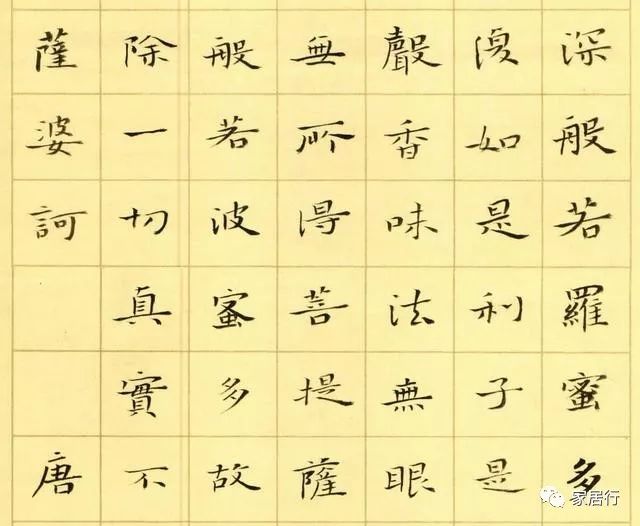 深般若羅蜜多
復如是利子是
聲香味法無眼
無所得菩提薩
般若波蜜多故
除一切真實不
薩婆訶 唐
家居行